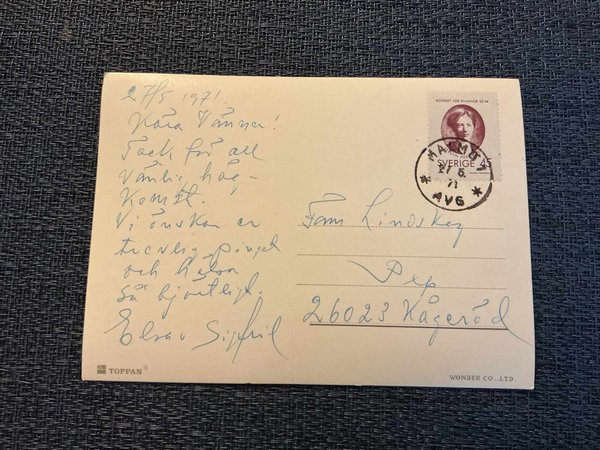 27/5 1971.
Kära Vänner!
Tack för all
vänlig håg-
komst.
Vi önskar er
trevlig pingst
och hälsa
så hjärtligt.
Elsa o Sigfrid
RÖSTRÄTT FÖR KVINNOR 50 ÅR
SVERIGE 45
MALMÖ 1
27. 5.
71
* AVG *
Fam Lindskog
26023 Kågeröd
TOPPAN®
WONDER CO., LTD.